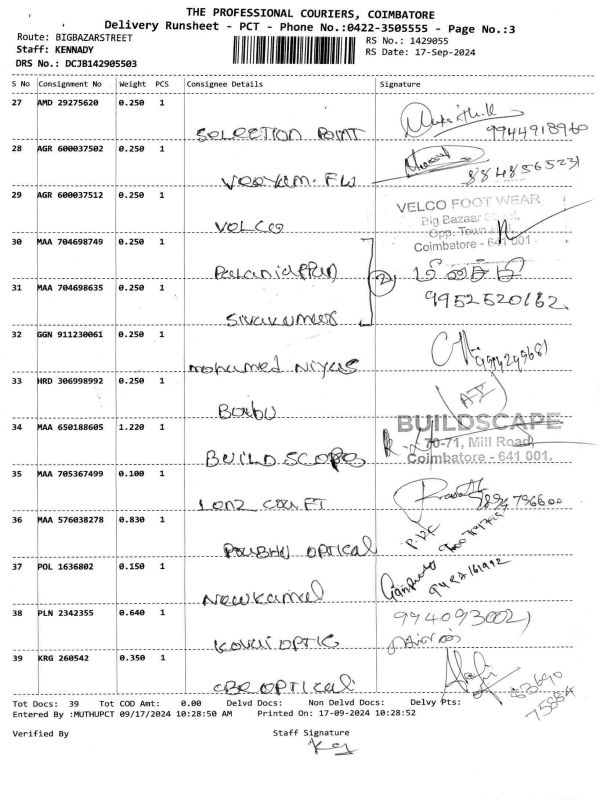 THE PROFESSIONAL COURIERS, COIMBATORE
Delivery Runsheet - PCT - Phone No.:0422-3505555 - Page No.:3
Route: BIGBAZARSTREET
RS No.: 1429055
Staff: KENNADY
RS Date: 17-Sep-2024
DRS No.: DCJB142905503
S No Consignment No Weight PCS Consignee Details Signature
27 AMD 29275620 0.250 1
SELECTION POINT 9944918960
28 AGR 600037502 0.250 1
8848565231
29 AGR 600037512 0.250 1
VELCO FOOT WEAR
Big Bazaar
VOLCO
Opp. Town
Coimbatore - 641 001
30 MAA 704698749 0.250 1
2
31 MAA 704698635 0.250 1
9952520162
Sivakumar
32 GGN 911230061 0.250 1
mohamed Niyas
33 HRD 306998992 0.250 1
Babu
34 MAA 650188605 1.220 1
BUILDSCAPE
70-71, Mill Road,
Coimbatore - 641 001.
BUILD SCOPE
35 MAA 705367499 0.100 1
36 MAA 576038278 0.830 1
OPTICAL
37 POL 1636802 0.150 1
New Kamal
38 PLN 2342355 0.640 1
OPTIC
39 KRG 260542 0.350 1
CBE OPTICAL
Tot Docs: 39 Tot COD Amt: 0.00 Delvd Docs: Non Delvd Docs: Delvy Pts:
Entered By :MUTHUPCT 09/17/2024 10:28:50 AM Printed On: 17-09-2024 10:28:52
Verified By Staff Signature